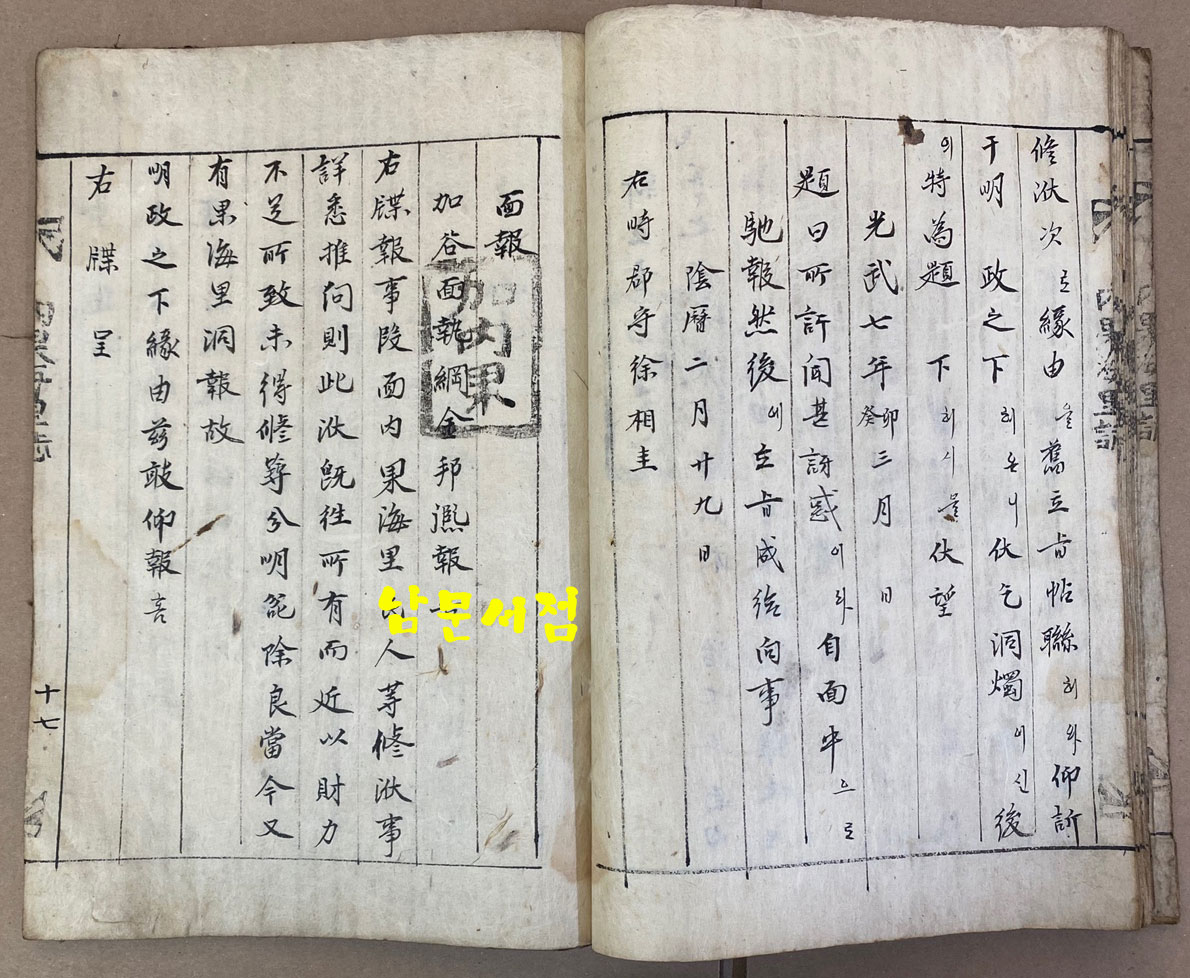 修洑次로緣由을舊立旨帖聯희와仰訴
于明政之下희온니伏乞洞燭이신後
의特為題下희시믈伏望
光武七年癸卯三月日
題曰所訴聞甚訝惑이와自面中으로
馳報然後에立旨成給向事
陰曆二月廿九日
右時郡守徐相圭
面報
加谷面執綱金邦 報
右牒報事段面內果海里民人等修洑事
詳悉推问則此洑旣往所有而近以財力
不足所致未得修築兮明 除良當今又
有果海里洞報故
明政之下緣由玆敢仰報喜
右牒呈
十七
加內果
남문서점